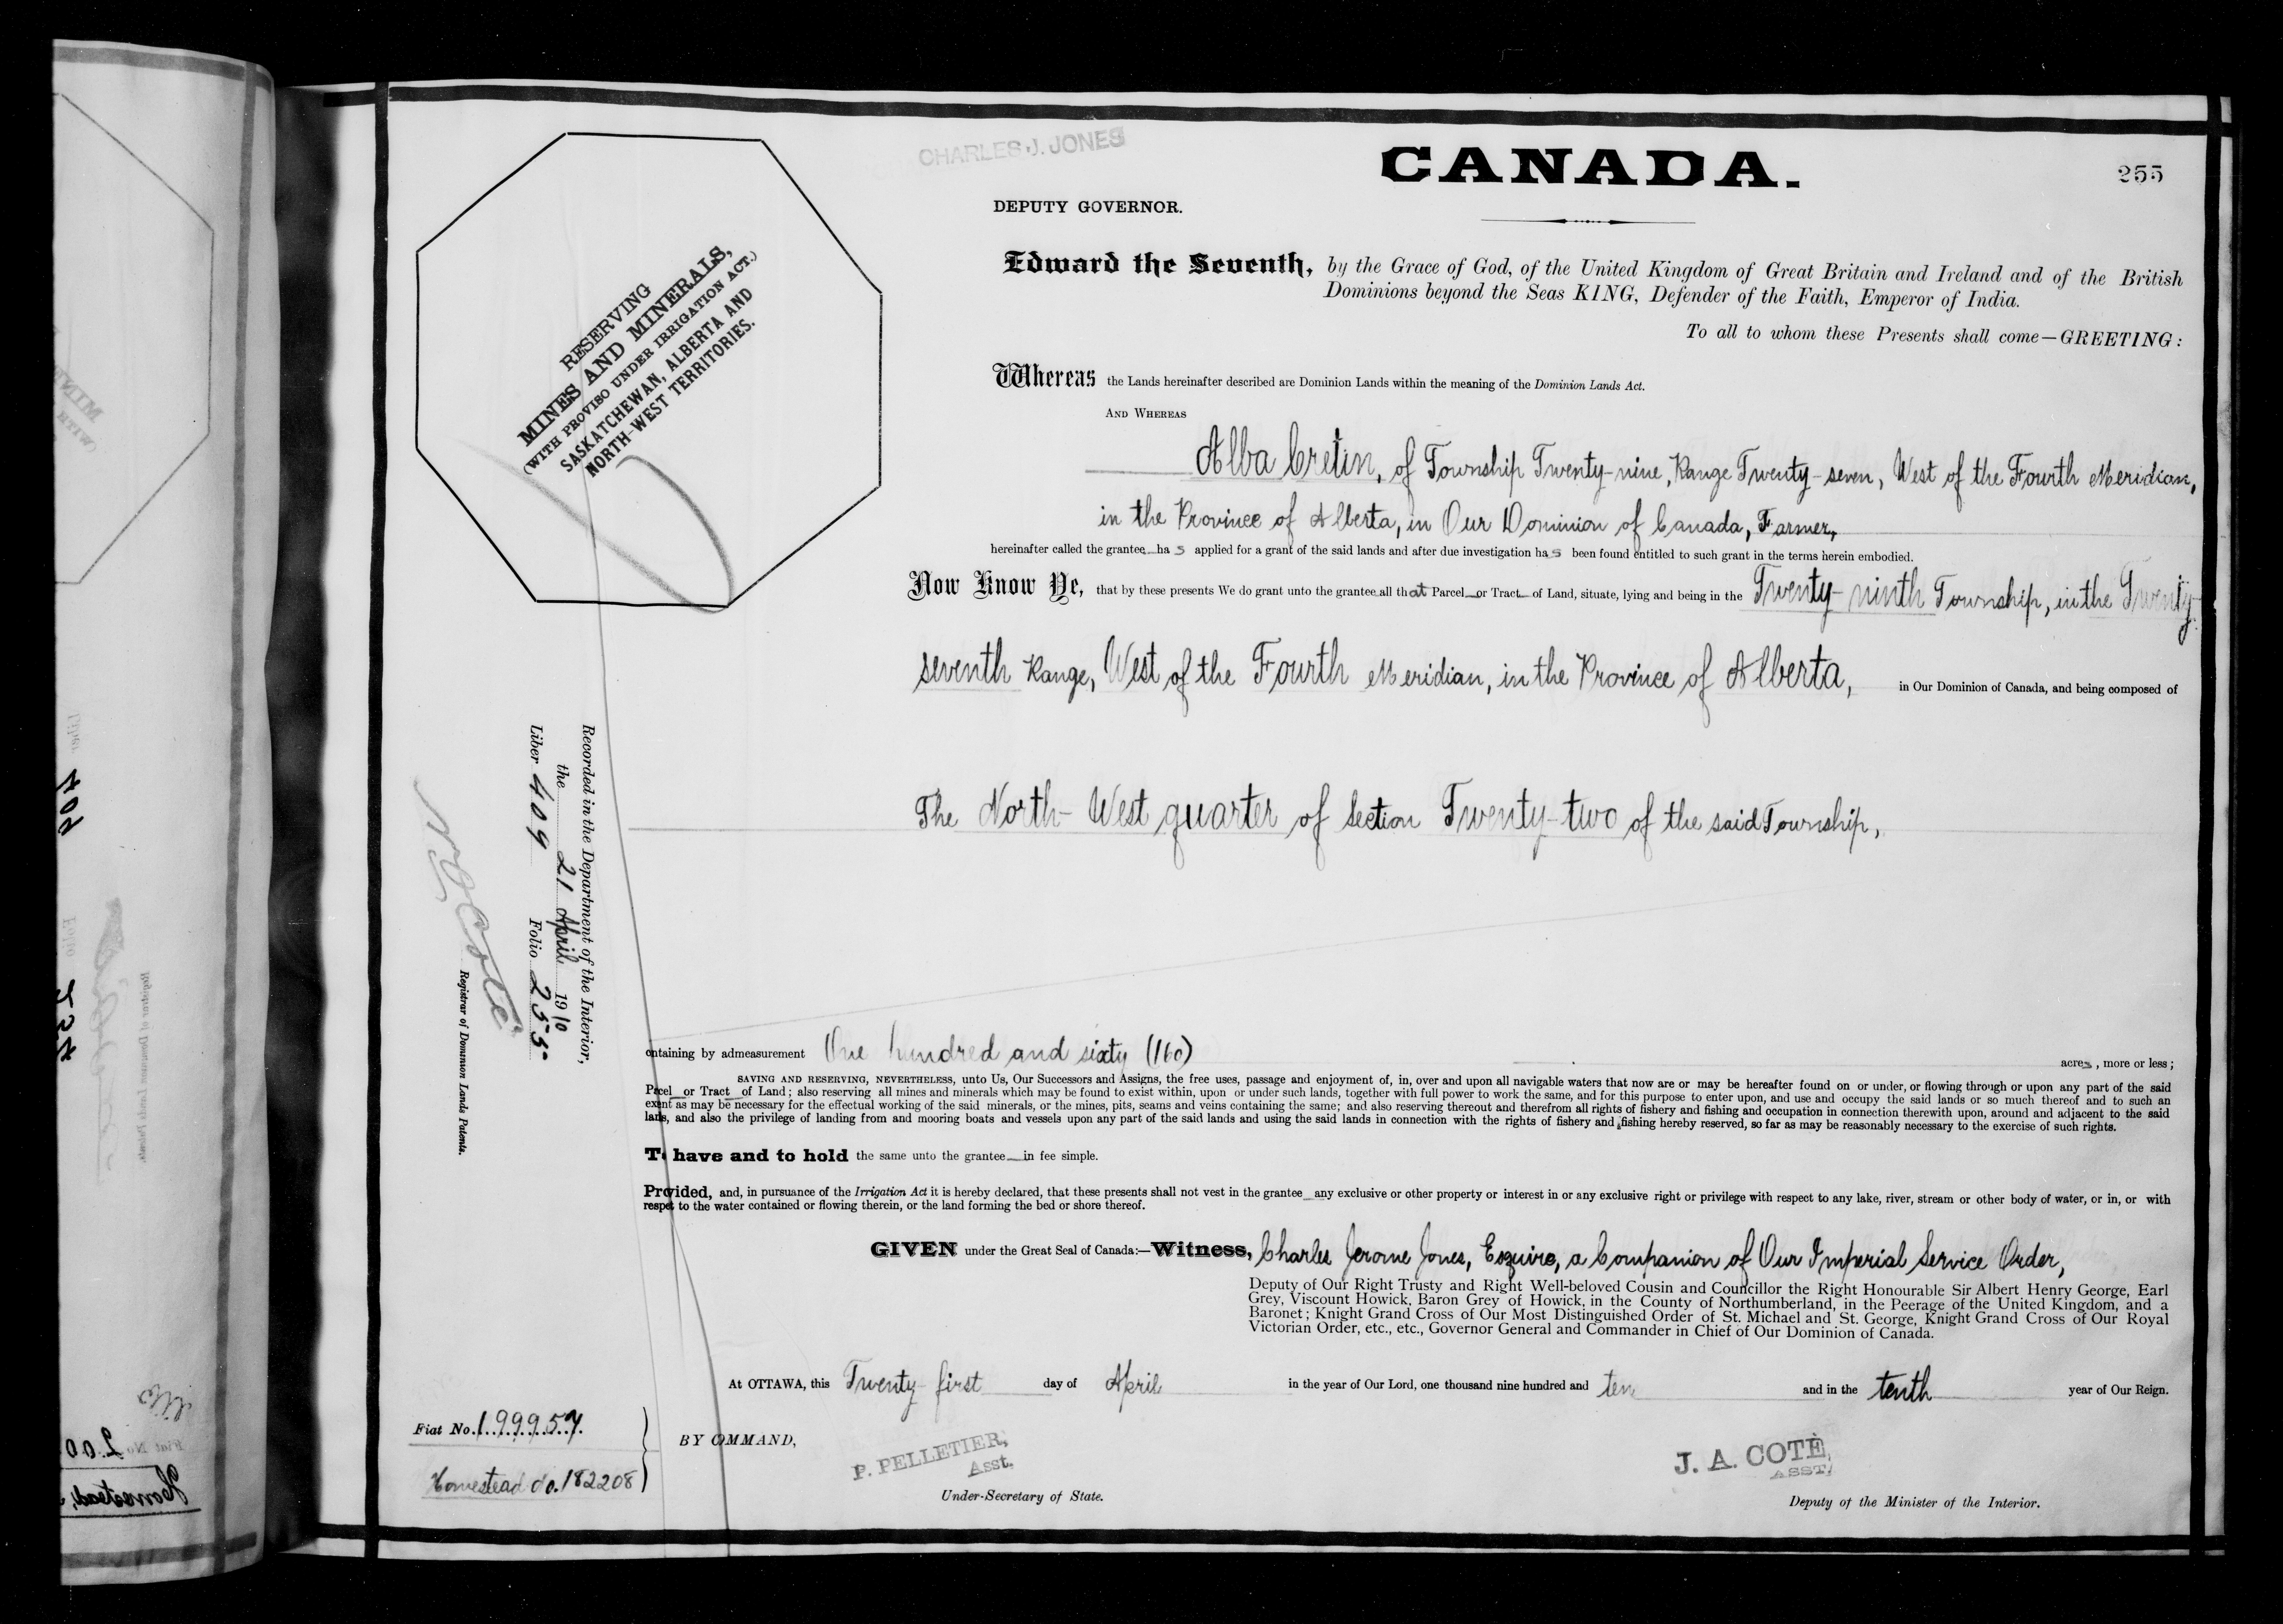 CHARLES J. JONES
CANADA.
255
DEPUTY GOVERNOR.
RESERVING
MINES AND MINERALS,
(WITH PROVISO UNDER IRRIGATION ACT.)
SASKATCHEWAN, ALBERTA AND
NORTH-WEST TERRITORIES.
Edward the Seventh, by the Grace of God, of the United Kingdom of Great Britain and Ireland and of the British
Dominions beyond the Seas KING, Defender of the Faith, Emperor of India.
To all to whom these Presents shall come—GREETING:
Whereas the Lands hereinafter described are Dominion Lands within the meaning of the Dominion Lands Act.
AND WHEREAS
Alba Cretin, of Township Twenty-nine, Range Twenty-seven, West of the Fourth Meridian,
in the Province of Alberta, in Our Dominion of Canada, Farmer,
hereinafter called the grantee has applied for a grant of the said lands and after due investigation has been found entitled to such grant in the terms herein embodied.
Now Know Ye, that by these presents We do grant unto the grantee all that Parcel or Tract of Land, situate, lying and being in the Twenty-ninth Township, in the Twenty-
seventh Range, West of the Fourth Meridian, in the Province of Alberta, in Our Dominion of Canada, and being composed of
The North-West quarter of Section Twenty-two of the said Township,
Recorded in the Department of the Interior,
the 21 April 1910
Liber 409 Folio 255.
N O Coté
Registrar of Dominion Lands Patents.
ontaining by admeasurement One hundred and sixty (160) acres, more or less;
SAVING AND RESERVING, NEVERTHELESS, unto Us, Our Successors and Assigns, the free uses, passage and enjoyment of, in, over and upon all navigable waters that now are or may be hereafter found on or under, or flowing through or upon any part of the said
Parcel or Tract of Land; also reserving all mines and minerals which may be found to exist within, upon or under such lands, together with full power to work the same, and for this purpose to enter upon, and use and occupy the said lands or so much thereof and to such an
extent as may be necessary for the effectual working of the said minerals, or the mines, pits, seams and veins containing the same; and also reserving thereout and therefrom all rights of fishery and fishing and occupation in connection therewith upon, around and adjacent to the said
lands, and also the privilege of landing from and mooring boats and vessels upon any part of the said lands and using the said lands in connection with the rights of fishery and fishing hereby reserved, so far as may be reasonably necessary to the exercise of such rights.
To have and to hold the same unto the grantee in fee simple.
Provided, and, in pursuance of the Irrigation Act it is hereby declared, that these presents shall not vest in the grantee any exclusive or other property or interest in or any exclusive right or privilege with respect to any lake, river, stream or other body of water, or in, or with
respect to the water contained or flowing therein, or the land forming the bed or shore thereof.
GIVEN under the Great Seal of Canada:—Witness, Charles Jerome Jones, Esquire, a Companion of Our Imperial Service Order,
Deputy of Our Right Trusty and Right Well-beloved Cousin and Councillor the Right Honourable Sir Albert Henry George, Earl
Grey, Viscount Howick, Baron Grey of Howick, in the County of Northumberland, in the Peerage of the United Kingdom, and a
Baronet; Knight Grand Cross of Our Most Distinguished Order of St. Michael and St. George, Knight Grand Cross of Our Royal
Victorian Order, etc., etc., Governor General and Commander in Chief of Our Dominion of Canada.
At OTTAWA, this Twenty first day of April in the year of Our Lord, one thousand nine hundred and ten and in the tenth year of Our Reign.
Fiat No. 199957.
Homestead No. 182208
BY COMMAND,
P. PELLETIER,
Asst.
Under-Secretary of State.
J. A. COTÉ,
ASST.
Deputy of the Minister of the Interior.